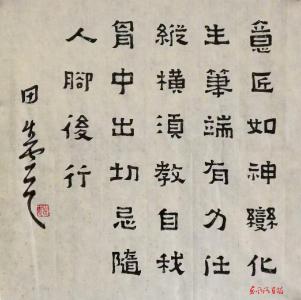 意匠如神變化
生筆端有力任
縱橫須教自我
胷中出切忌隨
人腳後行
田